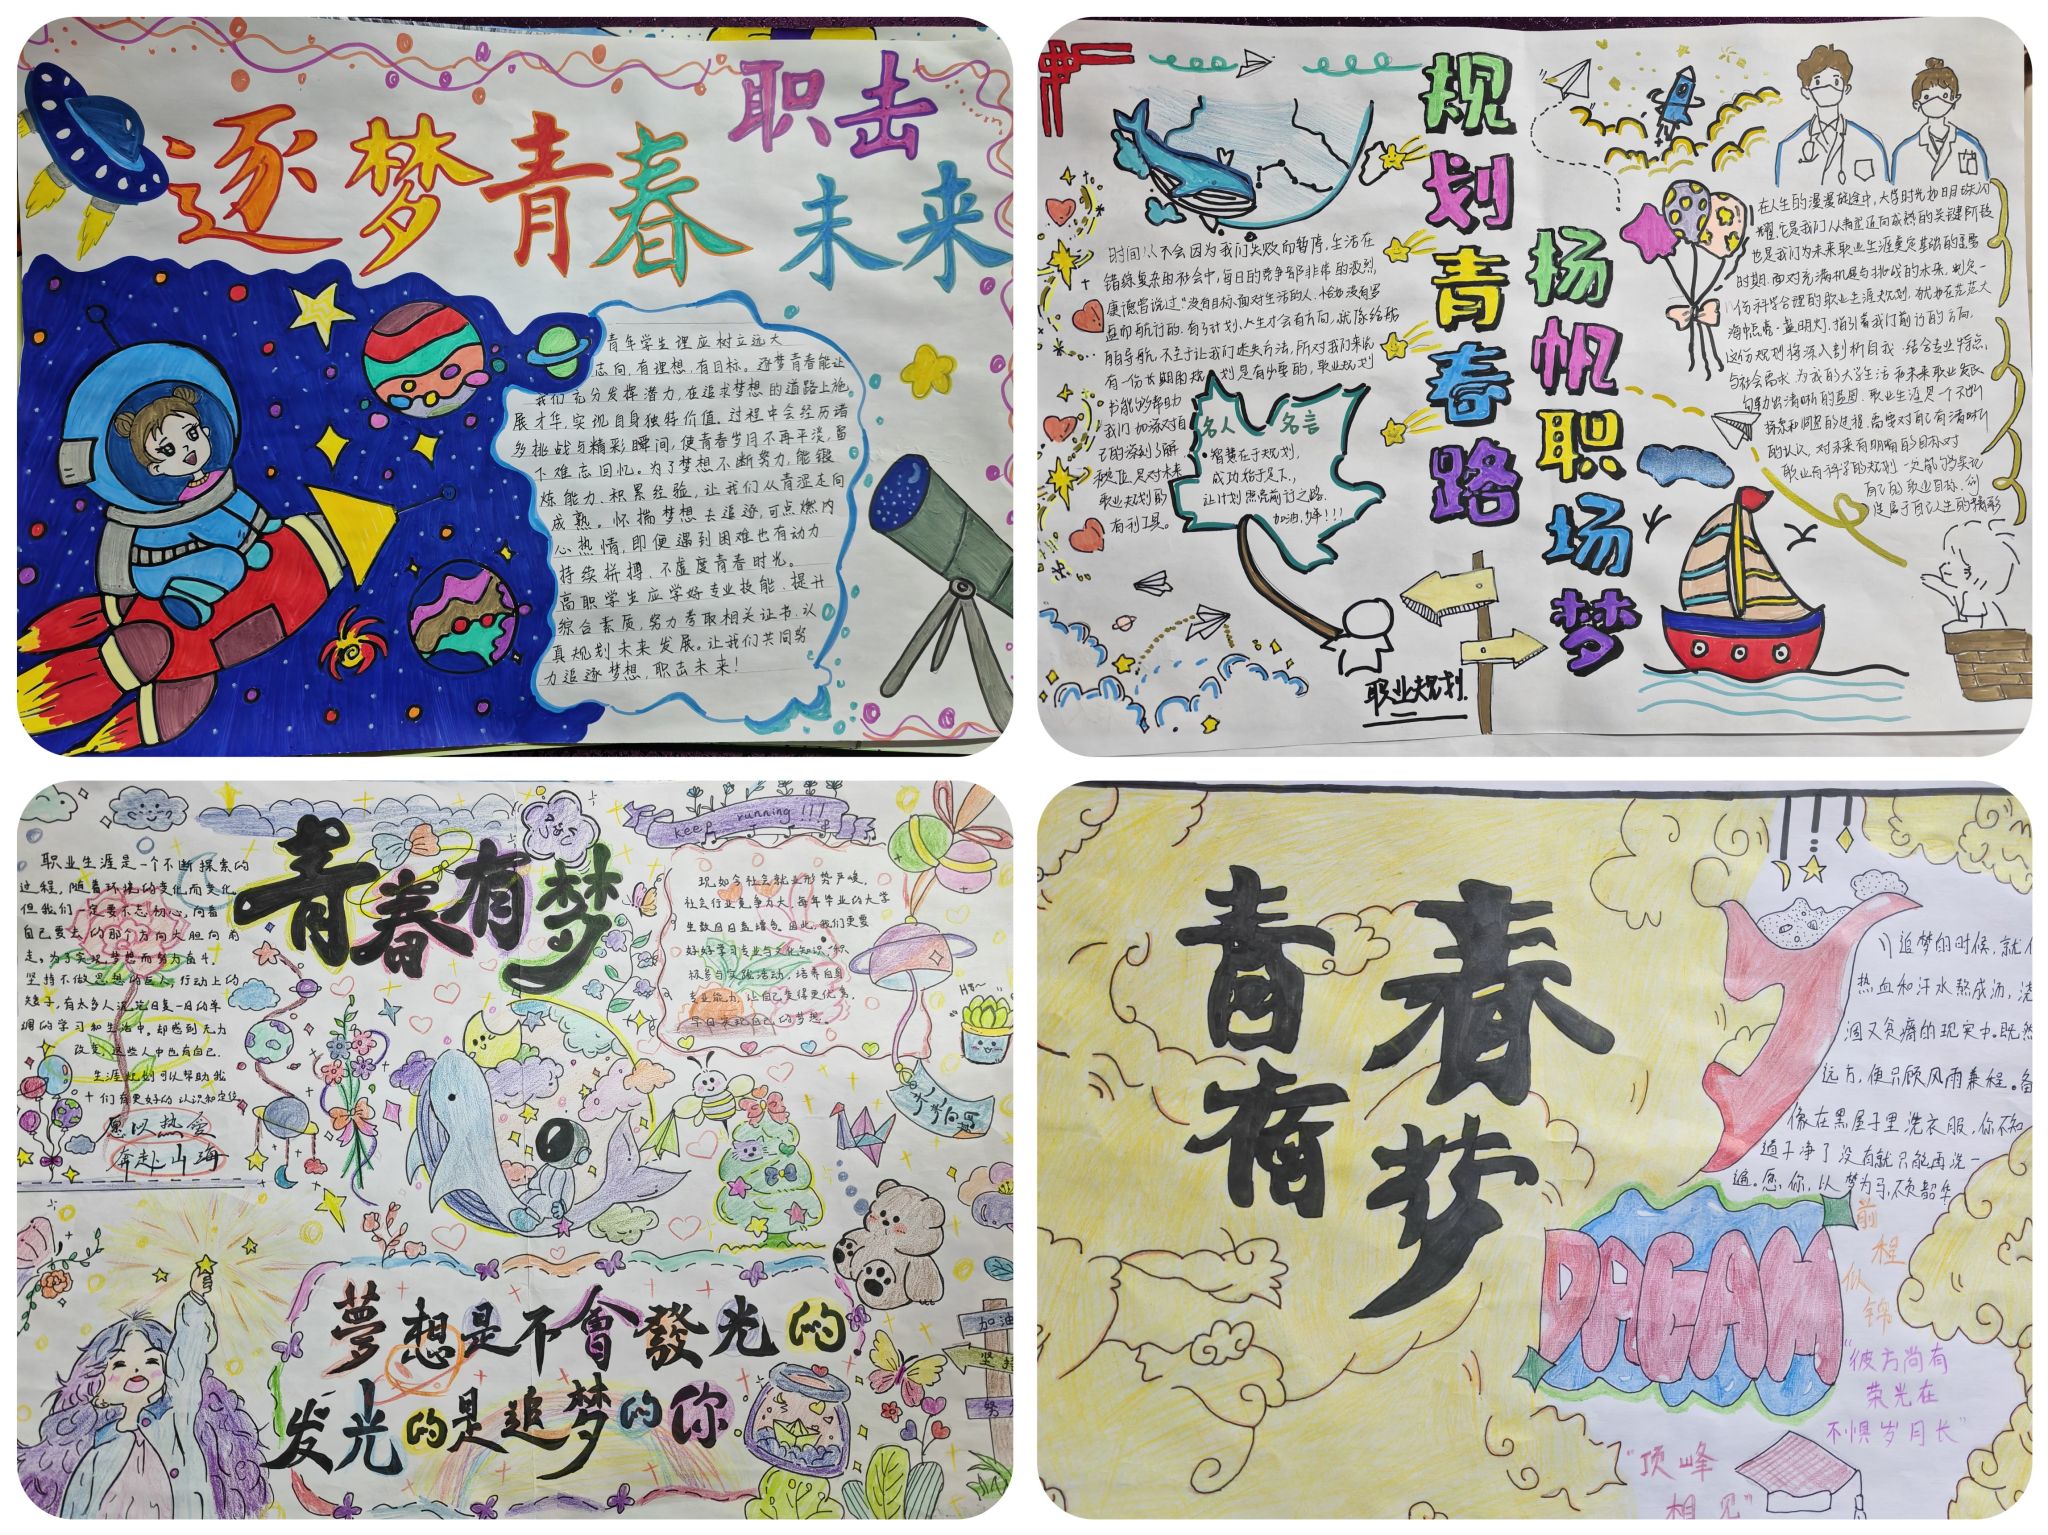 逐梦青春
职击
未来
青年学生理应树立远大
志向,有理想,有目标。逐梦青春能让
我们充分发挥潜力,在追求梦想的道路上施
展才华,实现自身独特价值。过程中会经历诸
多挑战与精彩瞬间,使青春岁月不再平淡,留
下难忘回忆。为了梦想不断努力,能锻
炼能力、积累经验,让我们从青涩走向
成熟。怀揣梦想去追逐,可点燃内
心热情,即便遇到困难也有动力
持续拼搏,不虚度青春时光。
高职学生应学好专业技能,提升
综合素质,努力考取相关证书,认
真规划未来发展。让我们共同努
力追逐梦想,职击未来!
规划青春路
扬帆职场梦
时间从不会因为我们失败而暂停,生活在
错综复杂的社会中,每日的竞争都非常的激烈,
康德曾说过“没有目标面对生活的人,恰如没有罗
盘而航行的.有了计划,人生才会有方向,就像给船
有一份长期的规划是有必要的,职业规划
书能够帮助
我们
己的深刻了解
职业规划的
有利工具。
名人名言
智慧在于规划,
成功始于足下,
让计划照亮前行之路.
加油,少年!!!
职业规划
在人生的漫漫旅途中,大学时光如日月珠闪
耀,它是我们从青涩迈向成熟的关键阶段
也是我们为未来职业生涯奠定基础的重要
时期.面对充满机遇与挑战的未来,制定一
份科学合理的职业生涯规划,就如在茫茫大
海中点亮一盏明灯,指引着我们前行的方向,
这份规划将深入剖析自我,结合专业特点,
与社会需求,为我的大学生活和未来职业发展
勾勒出清晰的蓝图.职业生涯是一个不断
探索和调整的过程,需要对自己有清晰
的认识,对未来有明确的目标,对
职业有科学的规划
自己的职业目标,创
造属于自己人生的精彩
青春有梦
keep running!!!
职业生涯是一个不断探索的
过程,随着环境的变化而变化
但我们一定要不忘初心,向着
自己要去的那个方向大胆向前
走。为了实现梦想而努力奋斗。
坚持不做思想的巨人,行动上的
矮子,有太多人沉沦日复一日的单
调的学习和生活中。却感到无力
改变,这些人中也有自己.
生涯规划可以帮助我
们有更好的认识和定位
愿以热爱
奔赴山海
现如今社会就业形势严峻,
社会行业竞争力大,每年毕业的大学
生数日日益增多。因此,我们更要
好好学习专业与文化知识,积
极参与实践活动,培养自身
专业能力,让自己变得更优秀,
早日实现自己的梦想。
梦想是不會發光的
发光的是追梦的你
加油
坚持
努
青春有梦
追梦的时候,就
热血和汗水熬成沥,浇
涸又贫瘠的现实中.既然
远方,便只顾风雨兼程。
像在黑屋子里洗衣服,你不知
道干净了没有就只能再洗一
遍。愿你,以梦为马,不负韶华
前程似锦
“彼方尚有
荣光在
不惧岁月长”
“顶峰
相见”